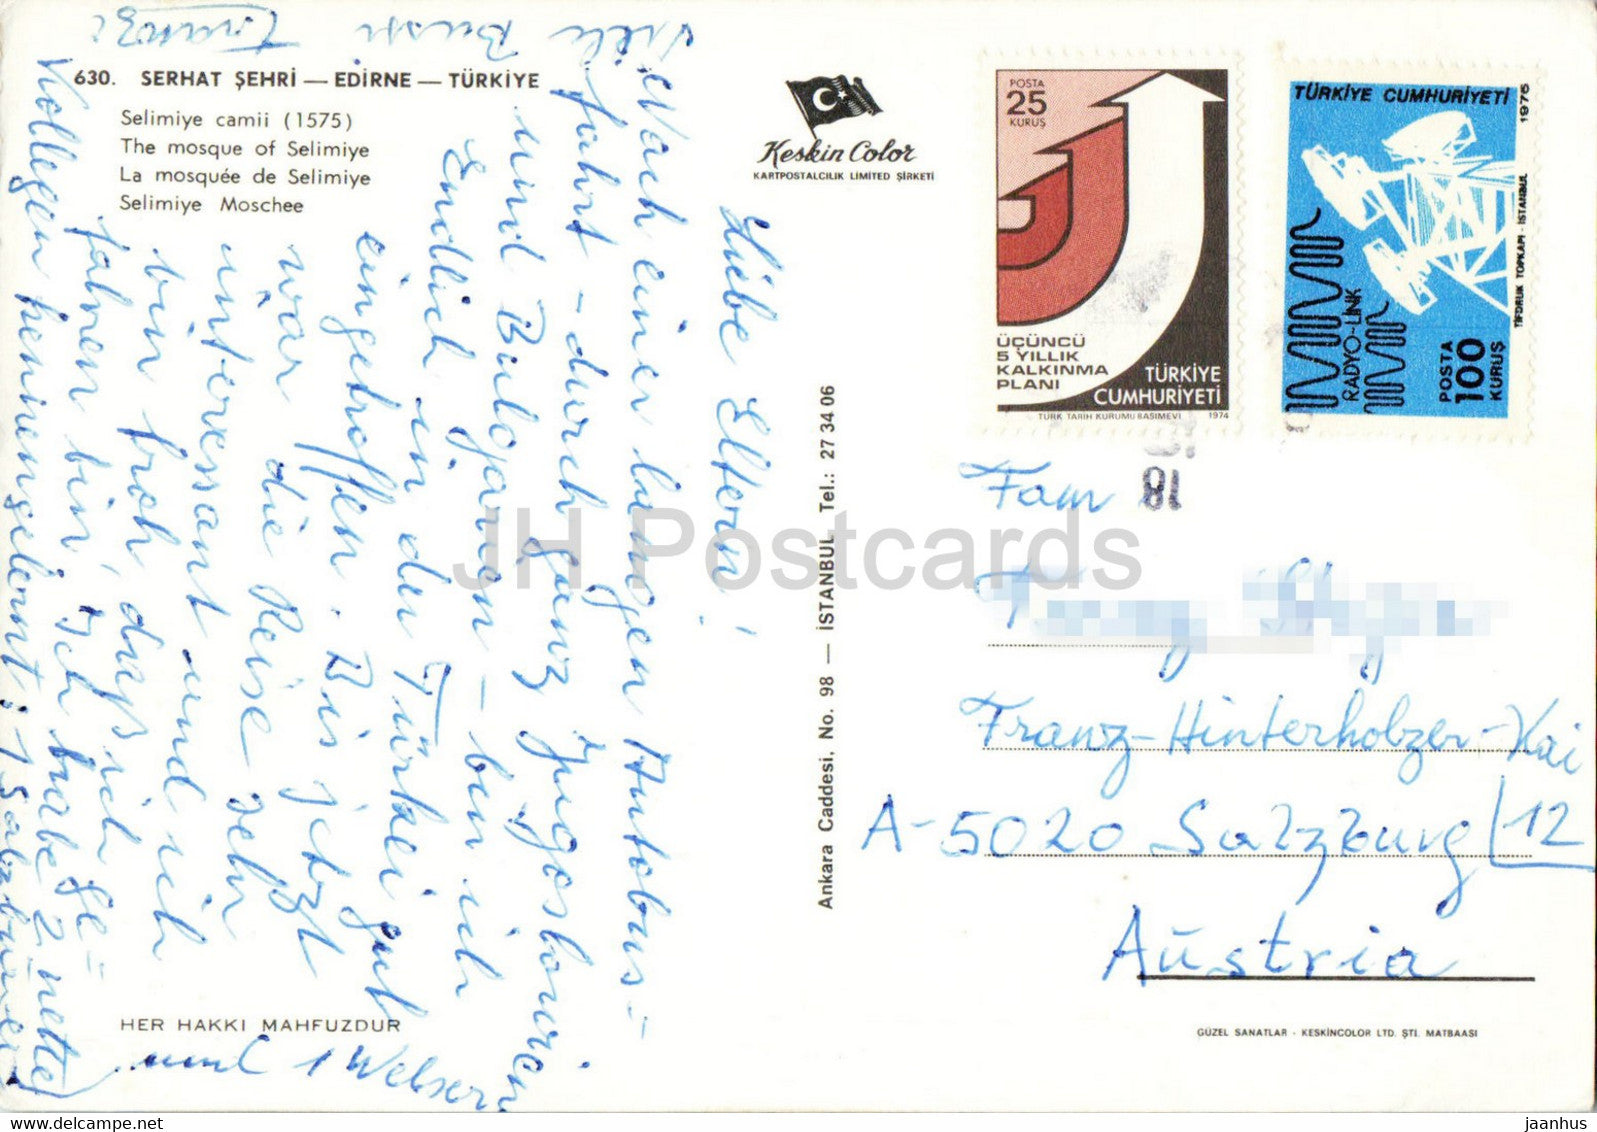 630. SERHAT ŞEHRİ — EDİRNE — TÜRKİYE
Selimiye camii (1575)
The mosque of Selimiye
La mosquée de Selimiye
Selimiye Moschee
Keskin Color
KARTPOSTALCILIK LIMITED ŞİRKETİ
POSTA
25
KURUŞ
ÜÇÜNCÜ
5 YILLIK
KALKINMA
PLANI
TÜRKİYE
CUMHURİYETİ
TÜRK TARİH KURUMU BASIMEVİ 1974
TÜRKİYE CUMHURİYETİ 1975
RADYO-LİNK
POSTA
100
KURUŞ
TİFDRUK TOPKAPI - İSTANBUL
18
Liebe Eltern!
Nach einer langen Autobus=
fahrt – durch ganz Jugoslawien
und Bulgarien – bin ich
Endlich in der Türkei gut
eingetroffen. Bis jetzt
war die Reise sehr
interessant und ich
bin froh, daß ich ge=
fahren bin. Ich habe 2 nette
Kollegen kennengelernt; 1 Salzburger
und 1 Welser.
Viele Bussi Franzi
Fam
Franz-Hinterholzer-Kai
12
A-5020 Salzburg
Austria
Ankara Caddesi. No. 98 — İSTANBUL Tel.: 27 34 06
HER HAKKI MAHFUZDUR
GÜZEL SANATLAR - KESKİNCOLOR LTD. ŞTİ. MATBAASI
JH Postcards
jaanhus @ delcampe.net